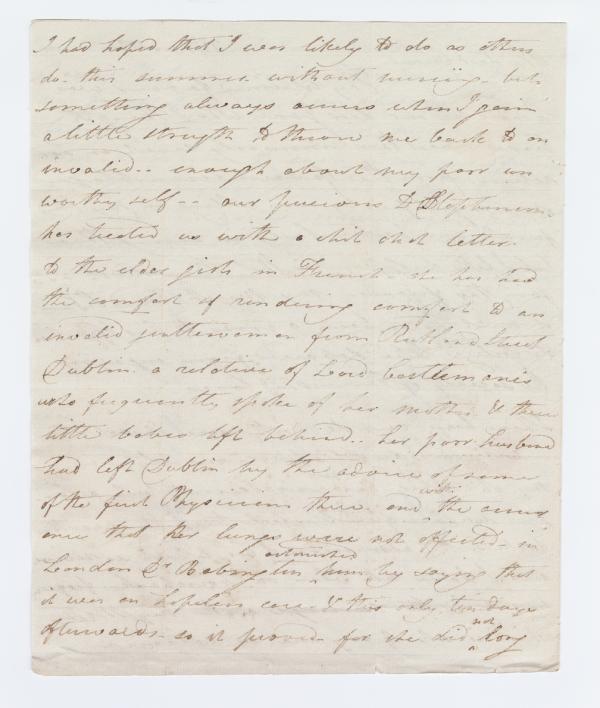 I had hoped that I was likely to do as others
do this summer without nursing - but
something always occurs when I gain
a little strength to throw me back to an
invalid .. enough about my poor un
worthy self - - our precious D
has treated us with a chit chat letter
to the elder girls in French she has had
the comfort of rendering comfort to an
invalid gentlewoman from Rutland Street
Dublin a relative of Lord Castlemaine's
who frequently spoke of her mother & three
little babes left behind .. her poor husband
had left Dublin by the advice of some
of the first Physicians there and with the assur
ance that her lungs were not affected - in
London Dr Babington astonished him by saying that
it was an hopeless case & this only ten days
afterwards - so it proved for she did not long